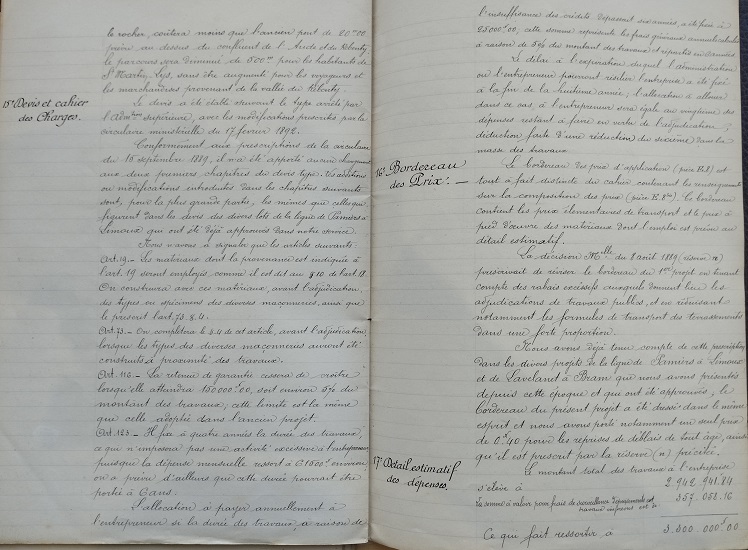 le rocher, coûtera moins que l'ancien pont de 20m00
prévu au dessus du confluent de l'Aude et du Rebenty
le parcours sera diminué de 500m pour les habitants de
St Martin-Lys, sans être augmenté pour les voyageurs et
les marchandises provenant de la vallée du Rebenty.
15° Devis et cahier
des Charges.
Le devis a été établi suivant le type arrêté par
l'Admon supérieure, avec les modifications prescrites par la
circulaire ministérielle du 17 février 1892.
Conformément aux prescriptions de la circulaire
du 16 septembre 1889, il n'a été apporté aucun changement
aux deux premiers chapitres du devis type. Les additions
ou modifications introduites dans les chapitres suivants
sont, pour la plus grande partie, les mêmes que celles qui
figurent dans les devis des divers lots de la ligne de Pamiers à
Limoux qui ont été déjà approuvés dans notre service.
Nous n'avons à signaler que les articles suivants:
Art. 19.- Les matériaux dont la provenance est indiquée à
l'art. 19 seront employés comme il est dit au § 10 de l'art. 18.
On construira avec ces matériaux, avant l'adjudication,
des types ou spécimens des diverses maçonneries, ainsi que
le prescrit l'art. 73. § 4.
Art. 73.- On complètera le § 4 de cet article, avant l'adjudication,
lorsque les types des diverses maçonneries auront été
construits à proximité des travaux.
Art. 116.- La retenue de garantie cessera de croître
lorsqu'elle atteindra 150.000f.00, soit environ 5% du
montant des travaux; cette limite est la même
que celle adoptée dans l'ancien projet.
Art. 123.- Il fixe à quatre années la durée des travaux,
ce qui n'imposera pas une activité excessive à l'entrepreneur
puisque la dépense mensuelle ressort à 61.500f environ
on a prévu d'ailleurs que cette durée pourrait être
portée à 6 ans.
L'allocation à payer annuellement à
l'entrepreneur si la durée des travaux, à raison de
l'insuffisance des crédits, dépassent six années, a été fixée à
25000f00; cette somme représente les frais généraux annuels calculés
à raison de 5% du montant des travaux et répartis en
Le délai à l'expiration duquel l'administration
ou l'entrepreneur pourront résilier l'entreprise a été fixé
à la fin de la huitième année; l'allocation à allouer
dans ce cas, à l'entrepreneur sera égale au vingtième des
dépenses restant à faire en vertu de l'adjudication,
déduction faite d'une réduction du sixième dans la
masse des travaux.
16° Bordereau
des Prix. -
Le bordereau des prix d'application (pièce 8.1) est
tout à fait distincte du cahier contenant les renseignements
sur la composition des prix (pièce 8.1bis). Le bordereau
contient les prix élémentaires de transport et les prix à
pied d'œuvre des matériaux dont l'emploi est prévu au
détail estimatif.
La décision Mlle du 8 août 1889 (réserve n)
prescrivait de réviser le bordereau du 1er projet en tenant
compte des rabais excessifs auxquels donnent lieu les
adjudications de travaux publics, et en réduisant
notamment les formules de transport des terrassements
dans une forte proportion.
Nous avons déjà tenu compte de cette prescription
dans les divers projets de la ligne de Pamiers à Limoux
et de Lavelanet à Bram que nous avons présentés
depuis cette époque et qui ont été approuvés; le
bordereau du présent projet a été dressé dans le même
esprit et nous avons porté notamment un seul prix
de 0f40 pour les reprises de déblais de tout âge, ainsi
qu'il est prescrit par la réserve (n) précitée.
17° Détail estimatif
des dépenses.
Le montant total des travaux à l'entreprise
s'élève à 2.942.941.84
La somme à valoir pour frais de surveillance, et
travaux imprévus est de 357.058.16
Ce qui fait ressortir à 3.300.000f00